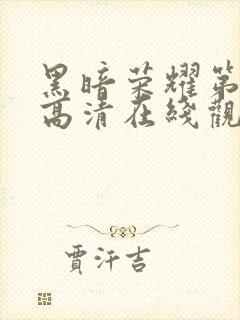 黑暗荣耀第
高清在线觀
賈汗吉